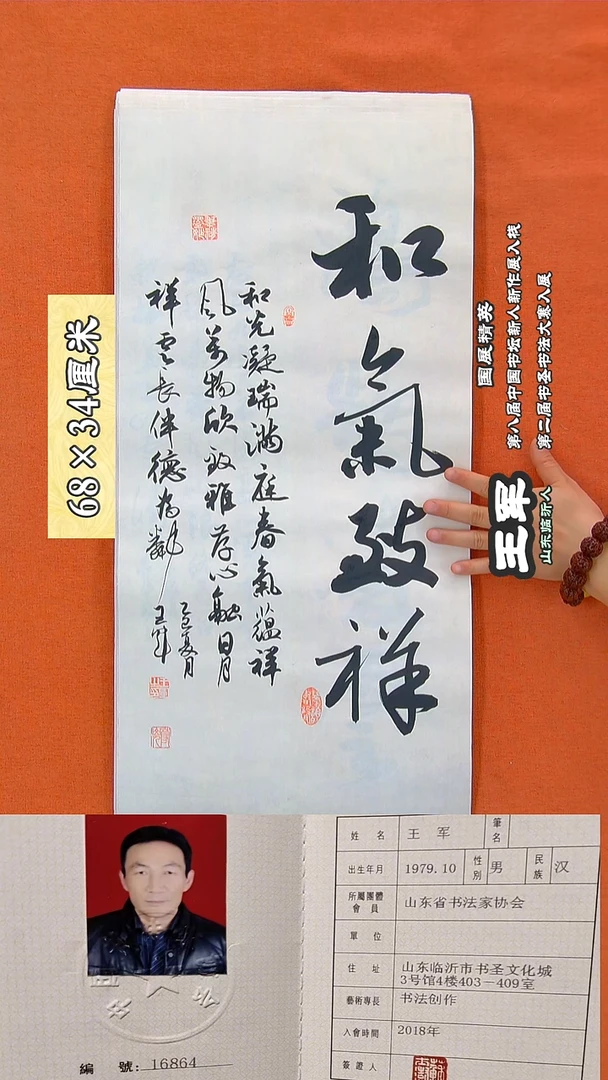 和氣致祥
和光凝瑞滿庭春氣蘊祥
風萬物欣致雅存心融日月
祥雲長伴德為鄰
乙巳夏月
王軍
68×34厘米
国展精英
第八届中国书坛新人新作展入展
第二届书圣书法大赛入展
王军
山东临沂人
編 號：16864
姓 名 王 军 筆名
出生年月 1979.10 性別 男 民族 汉
所屬團體會員 山东省书法家协会
單 位
住 址 山东临沂市书圣文化城
3号馆4楼403-409室
藝術專長 书法创作
入會時間 2018年
簽證人